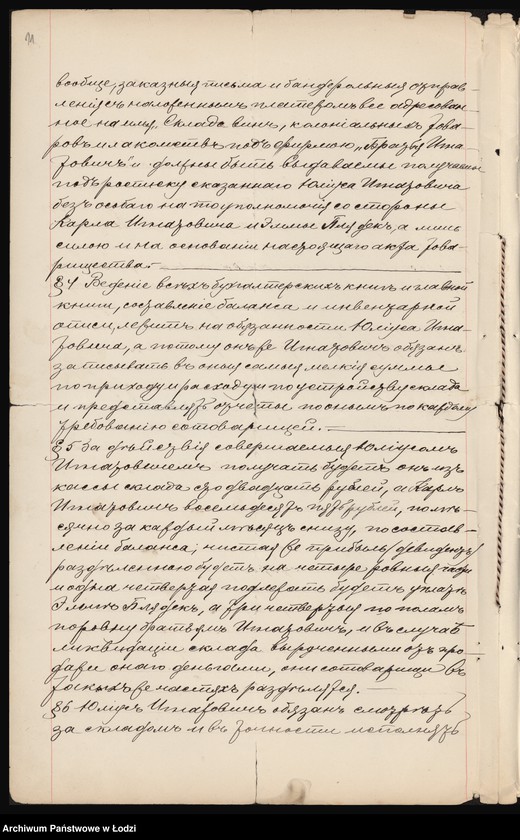 вообще, заказныя письма и бандерольныя отправ-
ленія съ наложеннымъ платежомъ все адресован-
ное на имя "Склада винъ, колоніальныхъ това-
ровъ и лакомствъ подъ фирмою "Братья Игна-
товичъ" и должны быть выдаваемы получаніи
подъ росписку сказаннаго Юліуса Игнатовича
безъ особаго на то уполномочія со стороны
Карла Игнатовича и Эммы Блядекъ, а лишь
силою и на основаніи настоящаго акта това-
рищества.
§ 4 Веденіе всѣхъ бухгалтерскихъ книгъ и главной
книги, составленіе баланса и инвентарной
описи, лежитъ на обязанности Юліуса Игна-
товича, а потому онъ же Игнатовичъ обязанъ
записывать въ оныя самыя мелкія суммы
по приходу и расходу и по устройству склада
и представлять отчеты по онымъ по каждому
требованію сотоварищей.
§ 5 За дѣйствія совершаемыя Юліусомъ
Игнатовичемъ получать будетъ онъ изъ
кассы склада сто двадцать рублей, а Карлъ
Игнатовичъ восемьдесятъ пять рублей, помѣ-
сячно за каждый мѣсяцъ снизу, по состав-
леніи баланса; чистая же прибыль /дивидендъ/
раздѣленною будетъ на четыре ровныя части
и одна четвертая подлежать будетъ уплатѣ
Эммѣ Блядекъ, а три четвертыя пополамъ
поровну братьямъ Игнатовичъ, и въ случаѣ
ликвидаціи склада вырученными отъ про-
дажи онаго деньгами, они сотоварищи въ
такихъ же частяхъ раздѣлятся.
§ 6 Юліусъ Игнатовичъ обязанъ смотрѣть
за складомъ и въ точности исполнять
Archiwum Państwowe w Łodzi